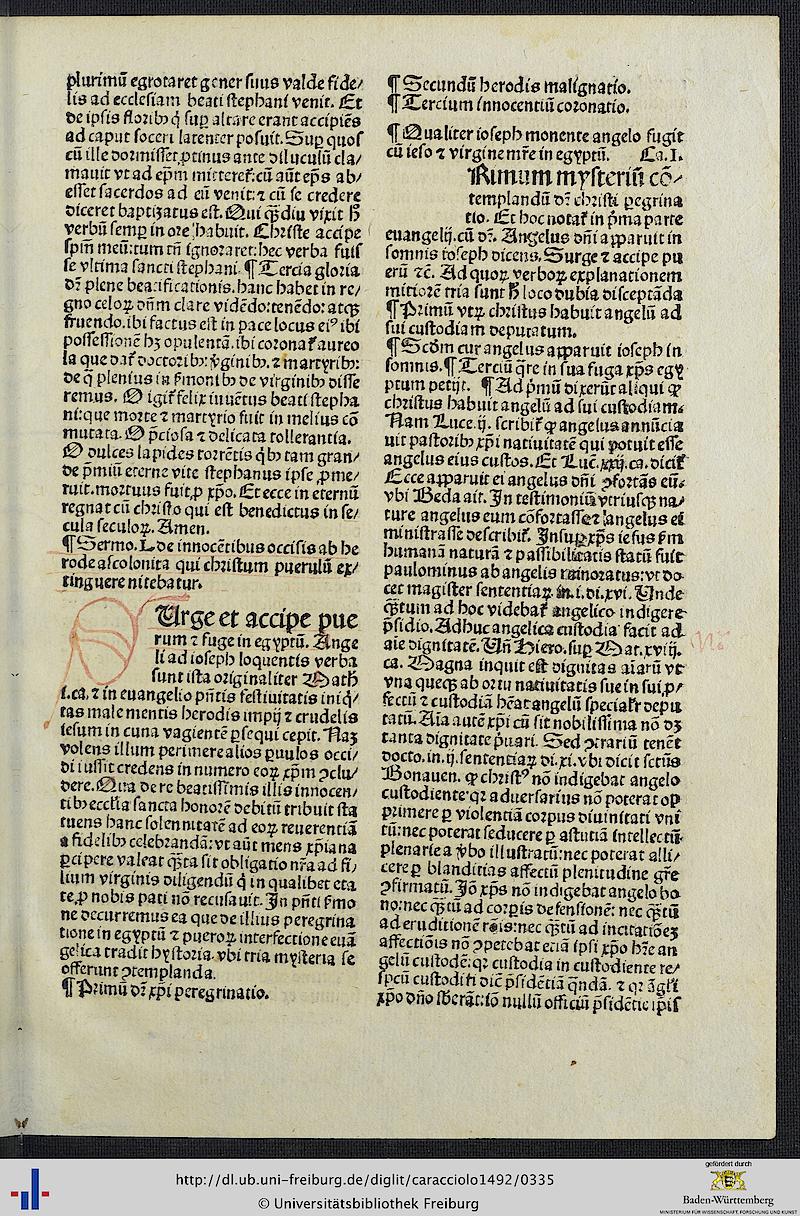 plurimū egrotaret gener suus valde fide/
lis ad ecclesiam beati stephani venit. Et
de ipsis floribꝰ q̇ suꝑ altare erant accipiēs
ad caput soceri latenter posuit. Suꝑ quos
cū ille dormisset, ꝓtinus ante diluculū cla/
mauit vt ad ep̄m mitteret: cū aūt ep̄s ab/
esset sacerdos ad eū venit: ⁊ cū se credere
diceret baptizatus est. Qui q̄ȝdiu vixit h̄
verbū semꝑ in ore habuit. Christe accipe
sp̄m meū: tum tn̄ ignoraret: hec verba fuis
se vltima sancti stephani. ¶ Tercia gloria
dr̄ plene beatificationis. hanc habet in re/
gno celoꝝ dn̄m clare vidēdo: tenēdo: atqȝ
fruendo. ibi factus est in pace locus eiꝰ ibi
possessionē hȝ opulentā. ibi corona ẜ aureo
la que dat̄ doctoribȝ: v̄ginibȝ. ⁊ martyribȝ:
de q̄ plenius in ẜmonibȝ de virginibȝ disse
remus. O igit̄ felix iuuētus beati stepha
ni: que morte ⁊ martyrio fuit in melius cō
mutata. O p̄ciosa ⁊ delicata tollerantia.
O dulces lapides torrētis q̇bȝ tam gran/
de p̄miū eterne vite stephanus ipse ꝓme/
ruit. mortuus fuit ꝓ xp̄o. Et ecce in eternū
regnat cū christo qui est benedictus in se/
cula seculoꝝ. Amen.
¶ Sermo. L. de innocētibus occisis ab he
rode ascolonita qui christum puerulū ex/
tinguere nitebatur.
Urge et accipe pue
rum ⁊ fuge in egyptū. Ange
li ad ioseph loquentis verba
sunt ista originaliter Math̄
i. ca. ⁊ in euangelio pn̄tis festiuitatis iniq̇/
tas male mentis herodis impij ⁊ crudelis
iesum in cuna vagientē ꝑsequi cepit. Naȝ
volens illum perimere alios ꝑuulos occi/
di iussit credens in numero eoꝝ xp̄m ꝯclu/
dere. Qua de re beatissimis illis innocen/
tibȝ eccl̄ia sancta honorē debitū tribuit sta
tuens hanc solennitatē ad eoꝝ reuerentiā
a fidelibȝ celebrandā: vt aūt mens xp̄iana
ꝑcipere valeat q̄ȝta sit obligatio nr̄a ad fi/
lium virginis diligendū q̇ in qualibet eta
te ꝓ nobis pati nō recusauit. In pn̄ti ẜmo
ne decurremus ea que de illius peregrina
tione in egyptū ⁊ pueroꝝ interfectione euā
gelica tradit hystoria. vbi tria mysteria se
offerunt ꝯtemplanda.
¶ Primū dr̄ xp̄i peregrinatio.
¶ Secundū herodis malignatio.
¶ Tercium innocentiū coronatio.
¶ Qualiter ioseph monente angelo fugit
cū ieso ⁊ virgine mr̄e in egyptū. Ca. I.
Rimum mysteriū cō/
templandū dr̄ christi peregrina
tio. Et hoc notat̄ in p̄ma parte
euangelij. cū dr̄. Angelus dn̄i apparuit in
somnis ioseph dicens, Surge ⁊ accipe pu
erū ⁊c̄. Ad quoꝝ verboꝝ explanationem
mitiorē tria sunt h̄ loco dubia disceptāda
¶ Primū vtꝝ christus habuit angelū ad
sui custodiam deputatum.
¶ Scd̄m cur angelus apparuit ioseph in
somnis. ¶ Terciū q̄re in sua fuga xp̄s egy
ptum petijt. ¶ Ad p̄mū dixerūt aliqui ꝙ
christus habuit angelū ad sui custodiam.
Nam Luce. ij. scribit̄ ꝙ angelus annūcia
uit pastoribȝ xp̄i natiuitatē qui potuit esse
angelus eius custos. Et Luc̄. xxij. ca. dicit̄
Ecce apparuit ei angelus dn̄i ꝯfortās eū.
vbi Beda ait. In testimoniū vtriusqȝ na/
ture angelus eum cōfortasse ⁊ angelus ei
ministrasse describit̄. Insuꝑ xp̄s iesus ẜm
humanā naturā ⁊ passibilitatis statū fuit
paulominus ab angelis minoratus: vt do
cet magister sententiaꝝ in. i. di. xvi. Unde
q̄ȝtum ad hoc videbat̄ angelico indigere
p̄sidio. Adhuc angelica custodia facit ad
aīe dignitatē. Un̄ Hiero. suꝑ Mat. xviij.
ca. Magna inquit est dignitas aīarū vt
vna queqȝ ab ortu natiuitatis sue in sui ꝓ/
fectū ⁊ custodiā hēat angelū specialr̄ depu
tatū. Aīa autē xp̄i cū sit nobilissima nō dȝ
tanta dignitate p̄uari. Sed ꝯtrariū tenēt
docto. in. ij. sententiaꝝ di. xi. vbi dicit sctūs
Bonauen. ꝙ christꝰ nō indigebat angelo
custodiente: qꝛ aduersarius nō poterat op
primere ꝑ violentiā corpus diuinitati vni
tū: nec poterat seducere ꝑ astutiā intellectū
plenarie a v̄bo illustratū: nec poterat alli/
cere ꝑ blanditias affectū plenitudine gr̄e
ꝯfirmatū. Iō xp̄s nō indigebat angelo bo
no: nec q̄ȝtū ad corꝑis defensionē: nec q̄ȝtū
ad eruditionē rōis: nec q̄ȝtū ad incitatiōeȝ
affectiōis nō ꝯpetebat etiā ipsi xp̄o hr̄e an
gelū custodē: qꝛ custodia in custodiente re/
spcū custoditi dic̄ p̄sidētiā q̄ndā. ⁊ qꝛ āgl̄i
xp̄o dn̄o sb̄erāt: iō nullū officiū p̄sidētie ip̄is
http://dl.ub.uni-freiburg.de/diglit/caracciolo1492/0335
© Universitätsbibliothek Freiburg
gefördert durch
Baden-Württemberg
MINISTERIUM FÜR WISSENSCHAFT, FORSCHUNG UND KUNST